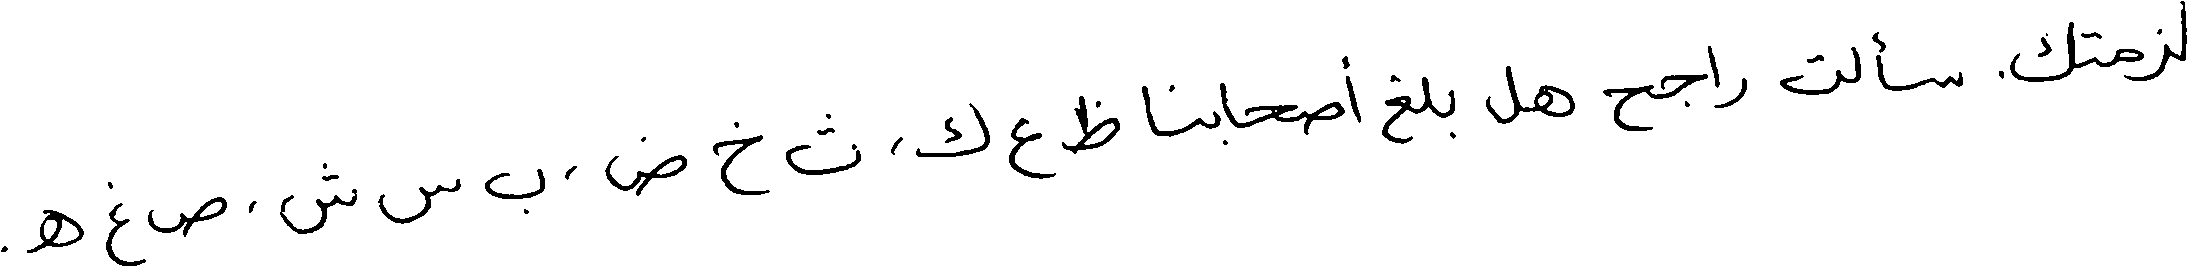 لزمتك. سألت راجح هل بلغ أصحابنا ظ ع ك، ث خ ض، ب س ش، ص غ ه.